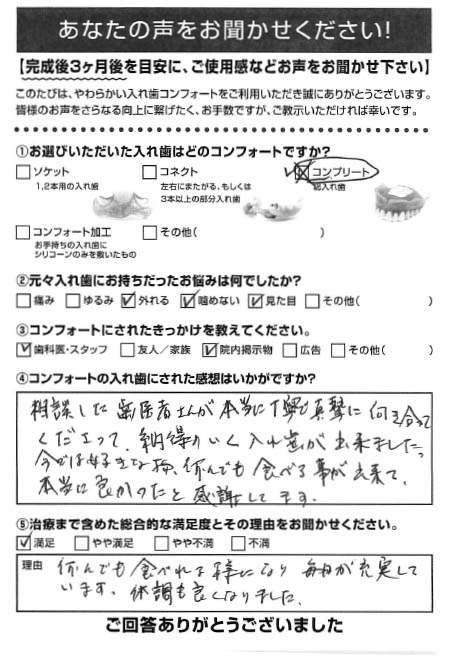 あなたの声をお聞かせください!
【完成後3ヶ月後を目安に、ご使用感などお声をお聞かせ下さい】
このたびは、やわらかい入れ歯コンフォートをご利用いただき誠にありがとうございます。
皆様のお声をさらなる向上に繋げたく、お手数ですが、ご教示いただければ幸いです。
①お選びいただいた入れ歯はどのコンフォートですか?
ソケット コネクト コンプリート
1,2本用の入れ歯 左右にまたがる、もしくは 総入れ歯
3本以上の部分入れ歯
コンフォート加工 その他( )
お手持ちの入れ歯に
シリコーンのみを敷いたもの
②元々入れ歯にお持ちだったお悩みは何でしたか?
痛み ゆるみ 外れる 噛めない 見た目 その他( )
③コンフォートにされたきっかけを教えてください。
歯科医・スタッフ 友人/家族 院内掲示物 広告 その他( )
④コンフォートの入れ歯にされた感想はいかがですか?
相談した歯医者さんが本当に丁寧で真摯に向き合って
くださって、納得のいく入れ歯が出来ました。
今では好きな物、何んでも食べる事が出来て、
本当に良かったと感謝してます。
⑤治療まで含めた総合的な満足度とその理由をお聞かせください。
満足 やや満足 やや不満 不満
理由 何んでも食べれる様になり 毎日が充実して
います。体調も良くなりました。
ご回答ありがとうございました